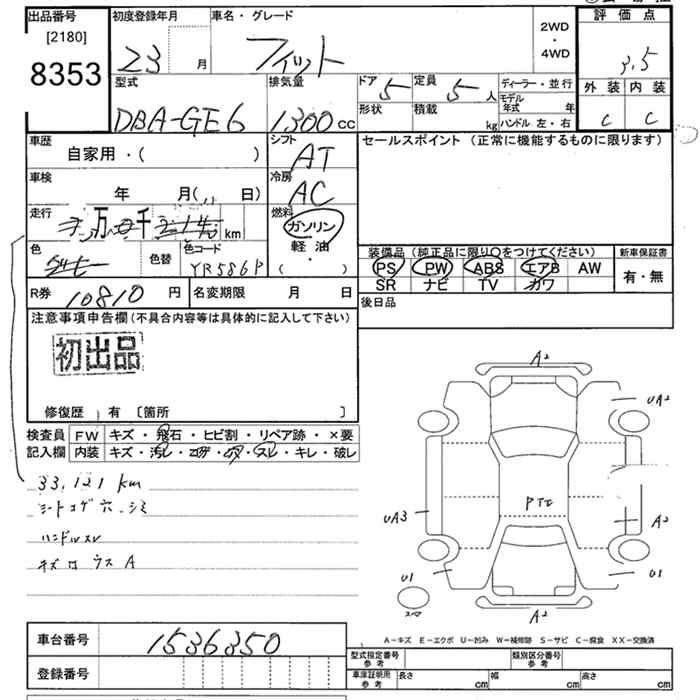 出品番号
[2180]
8353
初度登録年月
23 月
車名・グレード
フィット
2WD
・
4WD
評価点
3.5
外装 内装
C C
型式
DBA-GE6
排気量
1300 CC
ドア 5
定員 5 人
ディーラー・並行
形状
積載 kg
モデル年式 年
ハンドル 左・右
車歴
自家用・( )
シフト
AT
セールスポイント (正常に機能するものに限ります)
車検
年 月( 日)
冷房
AC
走行
万 千 km
燃料
ガソリン
軽油
( ・ )
色
色替
色コード
YR586P
装備品 (純正品に限り○をつけてください)
PS PW ABS エアB AW
SR ナビ TV カワ
新車保証書
有・無
R券 10810 円
名変期限 月 日
後日品
注意事項申告欄 (不具合内容等は具体的に記入して下さい)
初出品
修復歴 有 〔箇所 〕
検査員
記入欄
FW キズ・飛石・ヒビ割・リペア跡・×要
内装 キズ・汚レ・コゲ・穴・スレ・キレ・破レ
33,121 km
シートコゲ穴・シミ
ハンドルスレ
キズ ウス A
A2
UA2
PTE
UA3
A2
U1
U1
スペア
A2
A-キズ E-エクボ U-凹み W-補修跡 S-サビ C-腐食 XX-交換済
車台番号
1536350
登録番号
型式指定番号
参考
類別区分番号
参考
車庫証明用
参考
長さ cm
幅 cm
高さ cm